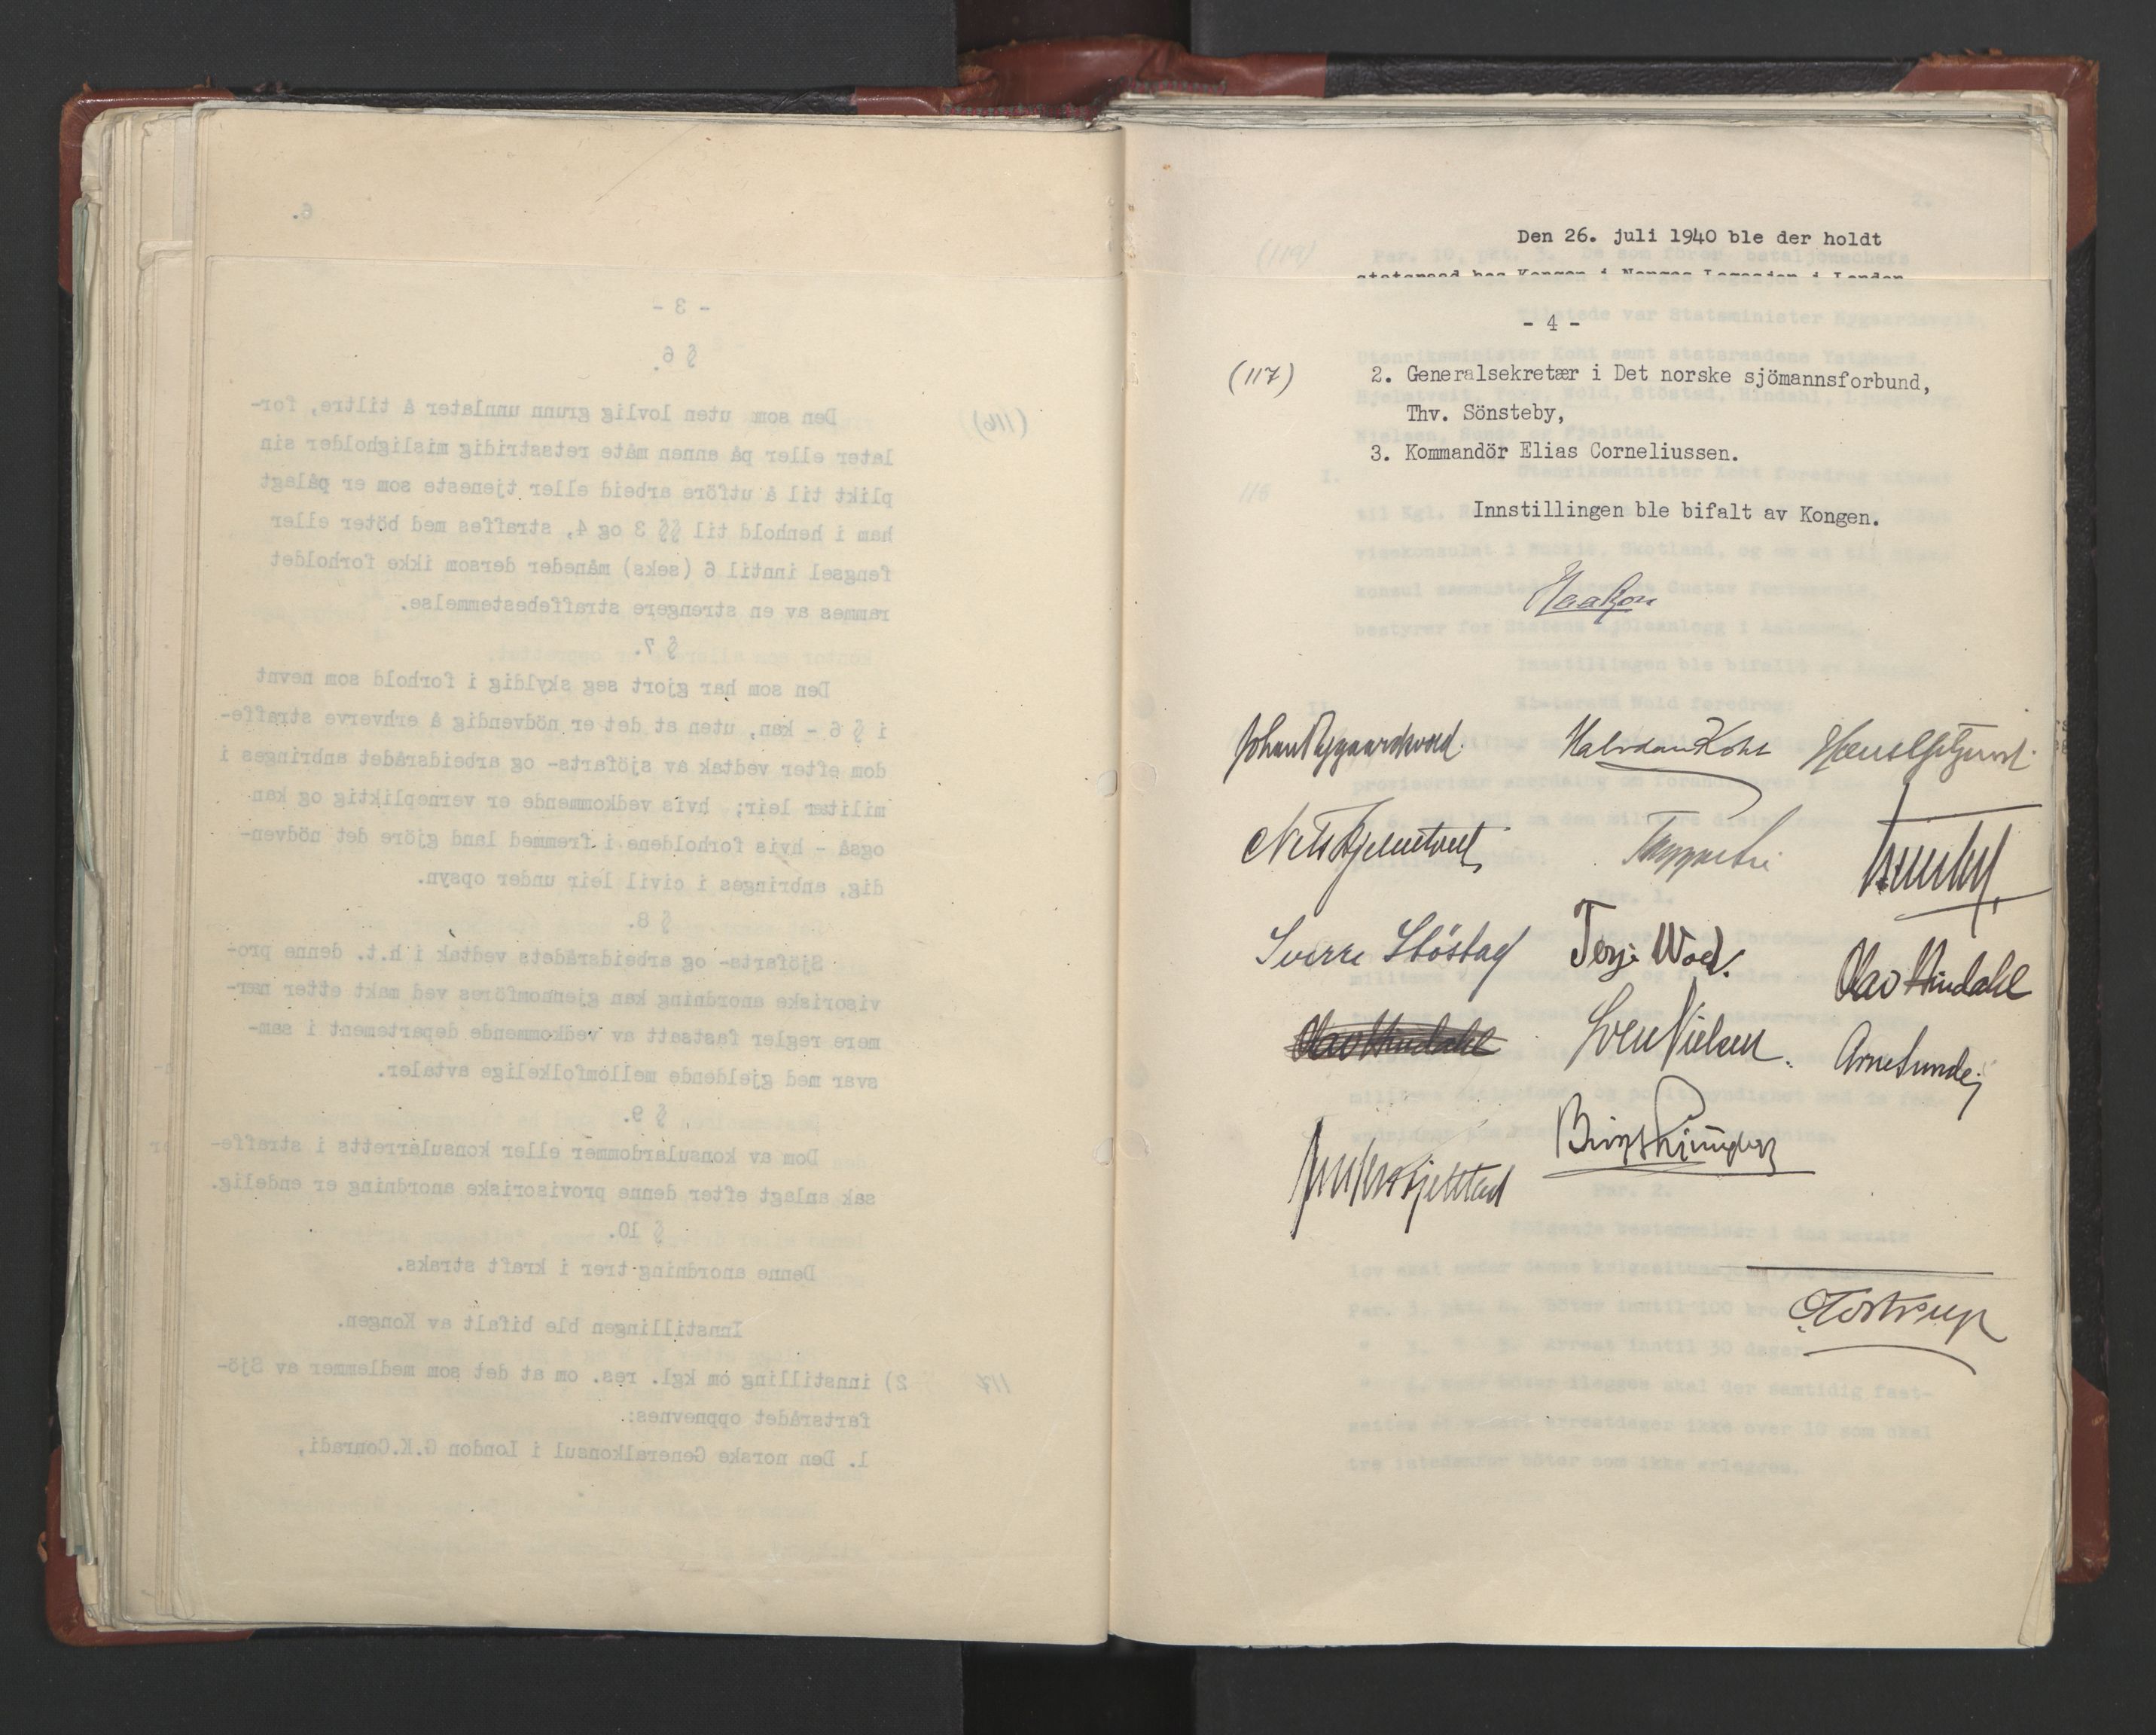 6.
- 3 -
§ 6.
(116)
Den som uten lovlig grunn unnlater å tiltre, for-
later eller på annen måte retsstridig misligholder sin
plikt til å utföre arbeid eller tjeneste som er pålagt
ham i henhold til §§ 3 og 4, straffes med böter eller
fengsel inntil 6 (seks) måneder dersom ikke forholdet
rammes av en strengere straffebestemmelse.
§ 7.
Den som har gjort seg skyldig i forhold som nevnt
i § 6 - kan, uten at det er nödvendig å erhverve straffe-
dom efter vedtak av sjöfarts- og arbeidsrådet anbringes i
militær leir; hvis vedkommende er vernepliktig og kan
også - hvis forholdene i fremmed land gjöre det nödven-
dig, anbringes i civil leir under opsyn.
§ 8.
Sjöfarts- og arbeidsrådets vedtak i h.t. denne pro-
visoriske anordning kan gjennomföres ved makt etter nær-
mere regler fastsatt av vedkommende departement i sam-
svar med gjeldende mellomfolkelige avtaler.
§ 9.
Dom av konsulardommer eller konsularretts i straffe-
sak anlagt efter denne provisoriske anordning er endelig.
§ 10.
Denne anordning trer i kraft straks.
Innstillingen ble bifalt av Kongen.
117
2) innstilling om kgl. res. om at det som medlemmer av Sjö-
fartsrådet oppnevnes:
1. Den norske Generalkonsul i London G.K.Conradi,
Den 26. juli 1940 ble der holdt
statsraad hos Kongen i Norges Legasjon i London
- 4 -
(117)
2. Generalsekretær i Det norske sjömannsforbund,
Thv. Sönsteby,
3. Kommandör Elias Corneliussen.
Innstillingen ble bifalt av Kongen.
Haakon
Johan Nygaardsvold. Halvdan Koht
Nils Hjelmtveit
Sverre Stöstad Terje Wold. Olav Hindahl
Olav Hindahl Sven Nielsen. Arne Sunde
Anders Fjelstad Birger Ljungberg
C Tostrup